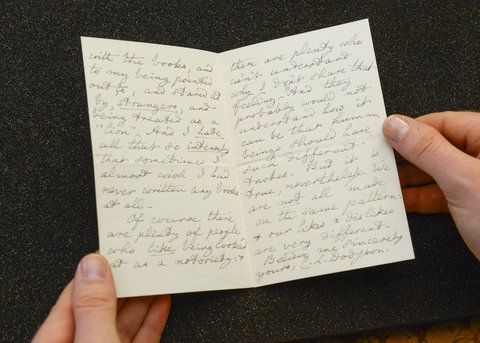 with the books, and
to my being pointed
out to, and stared at
by strangers, and
being treated as a
"lion". And I hate
all that so intensely
that sometimes I
almost wish I had
never written any books
at all —
Of course there
are plenty of people
who like being looked
at as a notoriety: &
there are plenty who
can't understand
why I don't share that
feeling. And they
probably would not
understand how it
can be that human
beings should have
such different
tastes. But it is
true, nevertheless. We
are not all made
on the same pattern:
& our likes & dislikes
are very different.
Believe me sincerely
yours, C. L. Dodgson.